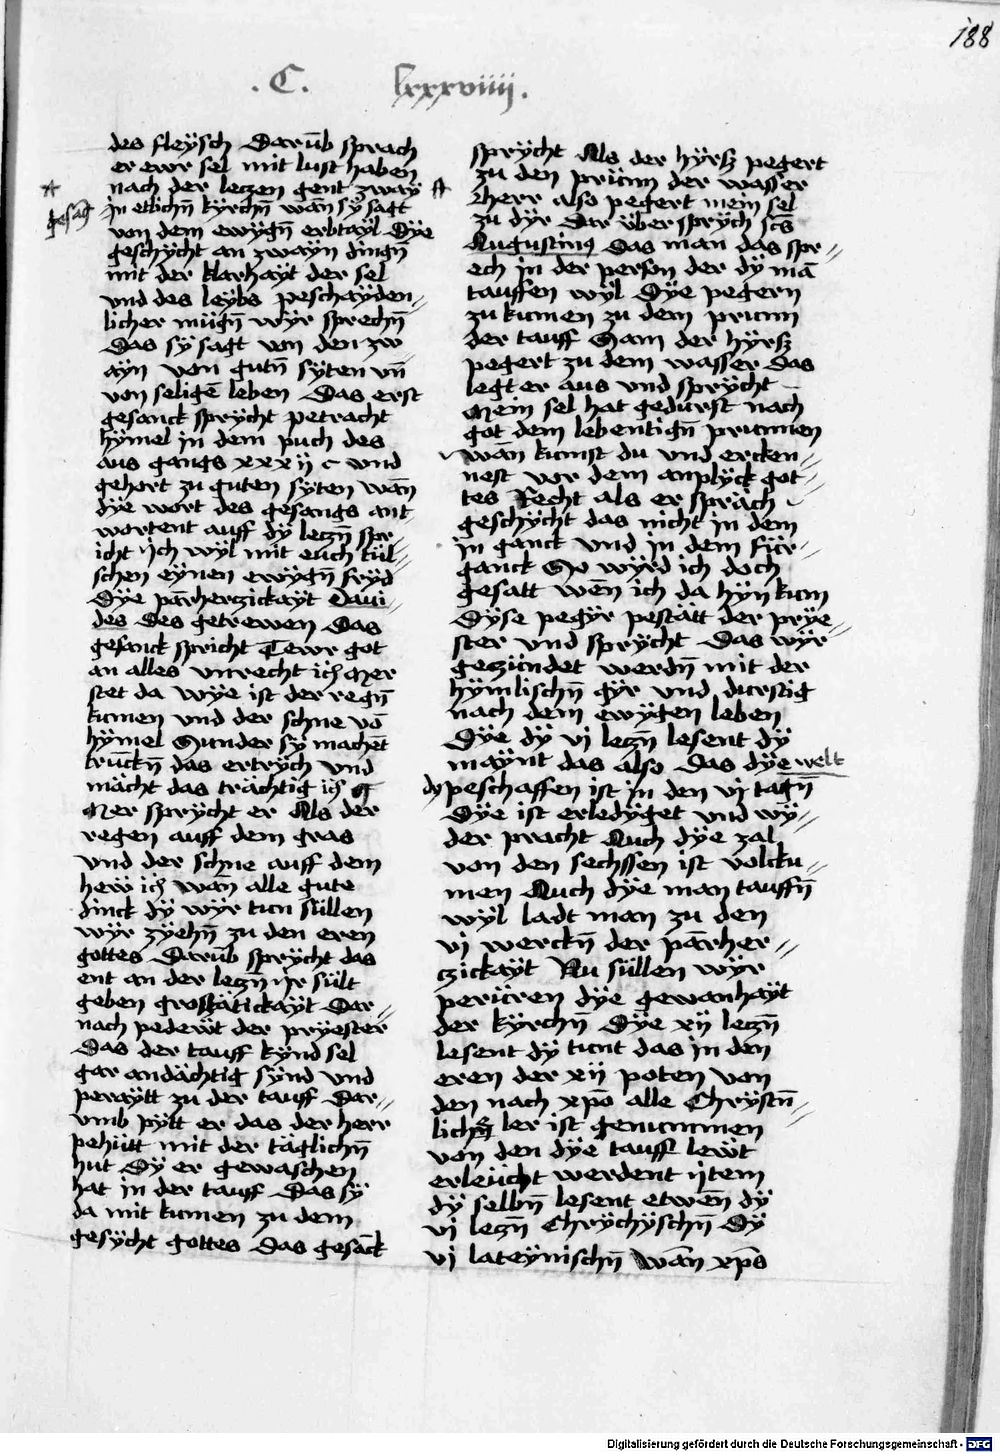 188
.C. lxxxviiij.
des fleÿsch Darūb sprach
er ewr sel mit lust haben
nach der leczen gent zwaÿ
gesāg
in etlichn̄ kÿrchn̄ wān sÿ sagt
von dem ewÿgn̄ erbtaÿl Dÿe
geschÿcht an zwaÿn dingn̄
mit der klarhaÿt der sel
vnd des leÿbs peschaÿden⸗
licher mügn̄ wÿr sprechn̄
Das sÿ sagt von den zw
aÿn von gutn̄ sÿten vn̄
von seligē leben Das erst
gesanck sprÿcht petracht
hÿmel in dem puch des
aus gangs xxxij c vnd
gehort zu guten sÿten wān
dÿe wort des gesangs ant
wortent auff dÿ leczn̄ spr⸗
icht ich wÿl mit euch tül⸗
schen eÿnen ewÿgn̄ frÿd
Dÿe pārherczickaÿt Daui⸗
des Des getrewen Das
gesanck spricht Tewr got
an alles vnrecht ich Mer
stet da wÿe ist der regn̄
kumen vnd der schne vō
hÿmel Sunder sÿ machēt
truckn̄ das ertrÿch vnd
mächt das trächtig ich
Mer sprÿcht er Als der
regen auff dem gras
vnd der schne auff dem
hew ich wān alle gute
dinck dÿ wÿr tun süllen
wÿr zÿehn̄ zu den eren
gottes Darūb sprÿcht das
ent an der leczn̄ ir sült
geben grostätickaÿt Dar⸗
nach pedewt der prÿester
Das der tauff kÿnd sel
gar andächtig sÿnd vnd
peraÿtt zu der tauff Dar⸗
vmb pÿtt er das der herr
pehütt mit der täglichn̄
hut Dÿ er gewaschen
hat in der tauff Das sÿ
da mit kumen zu dem
gesÿcht gottes Das gesāck
sprÿcht Als der hÿrsz pegert
zu den prünn der wasser
herr also pegert mein sel
zu dÿr Dar über sprÿch scs
Augustinus Das man das spr⸗
ech in der person der dÿ mā
tauffen wÿl Dÿe pegern
zu kumen zu dem prunn
der tauff Sam der hÿrsz
pegert zu dem wasser das
legt er aus vnd sprÿcht
Mein sel hat gedürst nach
got dem lebentign̄ prunnen
wān kumst du vnd ercken⸗
nest vor dem anplÿck got⸗
tes Recht als er spräch
geschÿcht das nicht in dem
in ganck vnd in dem für⸗
ganck So wÿrd ich doch
gesatt wēn ich da hÿn kum
Dÿse pegÿr pestätt der prÿe⸗
ster vnd sprÿcht Das wÿr
geczündet werdn̄ mit der
hÿmlischn̄ gÿr vnd durstig
nach dem ewÿgen leben
Dÿe dÿ vi leczn̄ lesent dÿ
maÿnt das also Das dÿe welt
dÿ peschaffen ist in den vi tagn̄
Dÿe ist erledÿget vnd wÿ⸗
der pracht Auch dÿe zal
von den sechssen ist volcku⸗
men Auch dÿe man tauffn̄
wÿl ladt man zu den
vi werckn̄ der pārher⸗
czickaÿt Nu süllen wÿr
perüren dÿe gewanhaÿt
der kÿrchn̄ Dÿe xij leczn̄
lesent dÿ tunt das in den
eren der xij poten von
den nach xpō alle Chrÿstn̄⸗
ler ist genummen
von den dÿe tauff lewt
erleücht werdent item
dÿ selbn̄ lesent etwēn dÿ
vi leczn̄ Chrÿchÿschn̄ Dÿ
vi lateÿnischn̄ wān xp̄s
Digitalisierung gefördert durch die Deutsche Forschungsgemeinschaft - DFG